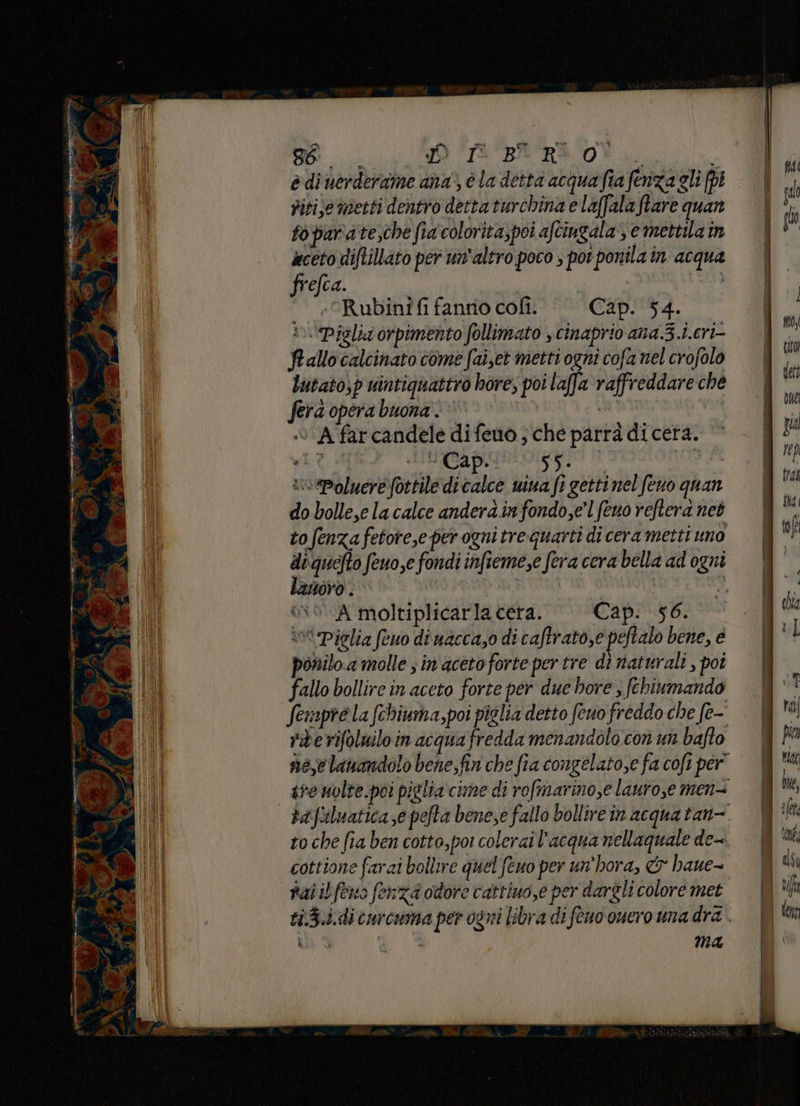 86 L I B R O
è di uerderame ana, e la detta acqua sia senza gli spi
riti, e metti dentro detta turchina e lassala stare quan
to par a te, che sia colorita, poi asciugala, e mettila in
aceto distillato per un'altro poco, poi ponila in acqua
fresca.
Rubini si fanno cosi. Cap. 54.
Piglia orpimento sollimato, cinaprio ana.℥.i.cri-
stallo calcinato come sai, et metti ogni cosa nel crosolo
lutato, p uintiquattro hore, poi lassa raffreddare che
serà opera buona.
A far candele di seuo, che parrà di cera.
Cap. 55.
Poluere sottile di calce uiua si getti nel seuo quan
do bolle, e la calce anderà in fondo, e'l seuo resterà net
to senza fetore, e per ogni tre quarti di cera metti uno
di questo seuo, e fondi insieme, e sera cera bella ad ogni
lauoro.
A moltiplicar la cera. Cap. 56.
Piglia seuo di uacca, o di castrato, e pestalo bene, e
ponilo a molle, in aceto forte per tre dì naturali, poi
fallo bollire in aceto forte per due hore, schiumando
sempre la schiuma, poi piglia detto seuo freddo che se-
rà e risoluilo in acqua fredda menandolo con un basto
ne, e lauandolo bene, fin che sia congelato, e fa cosi per
tre uolte. poi piglia cime di rosmarino, e lauro, e men-
ta saluatica, e pesta bene, e fallo bollire in acqua tan-
to che sia ben cotto, poi colerai l'acqua nellaquale de-
cottione farai bollire quel seuo per un'hora, & haue-
rai il seuo senza odore cattiuo, e per dargli colore met
ti.℥.i.di curcuma per ogni libra di seuo ouero una dra.
ma